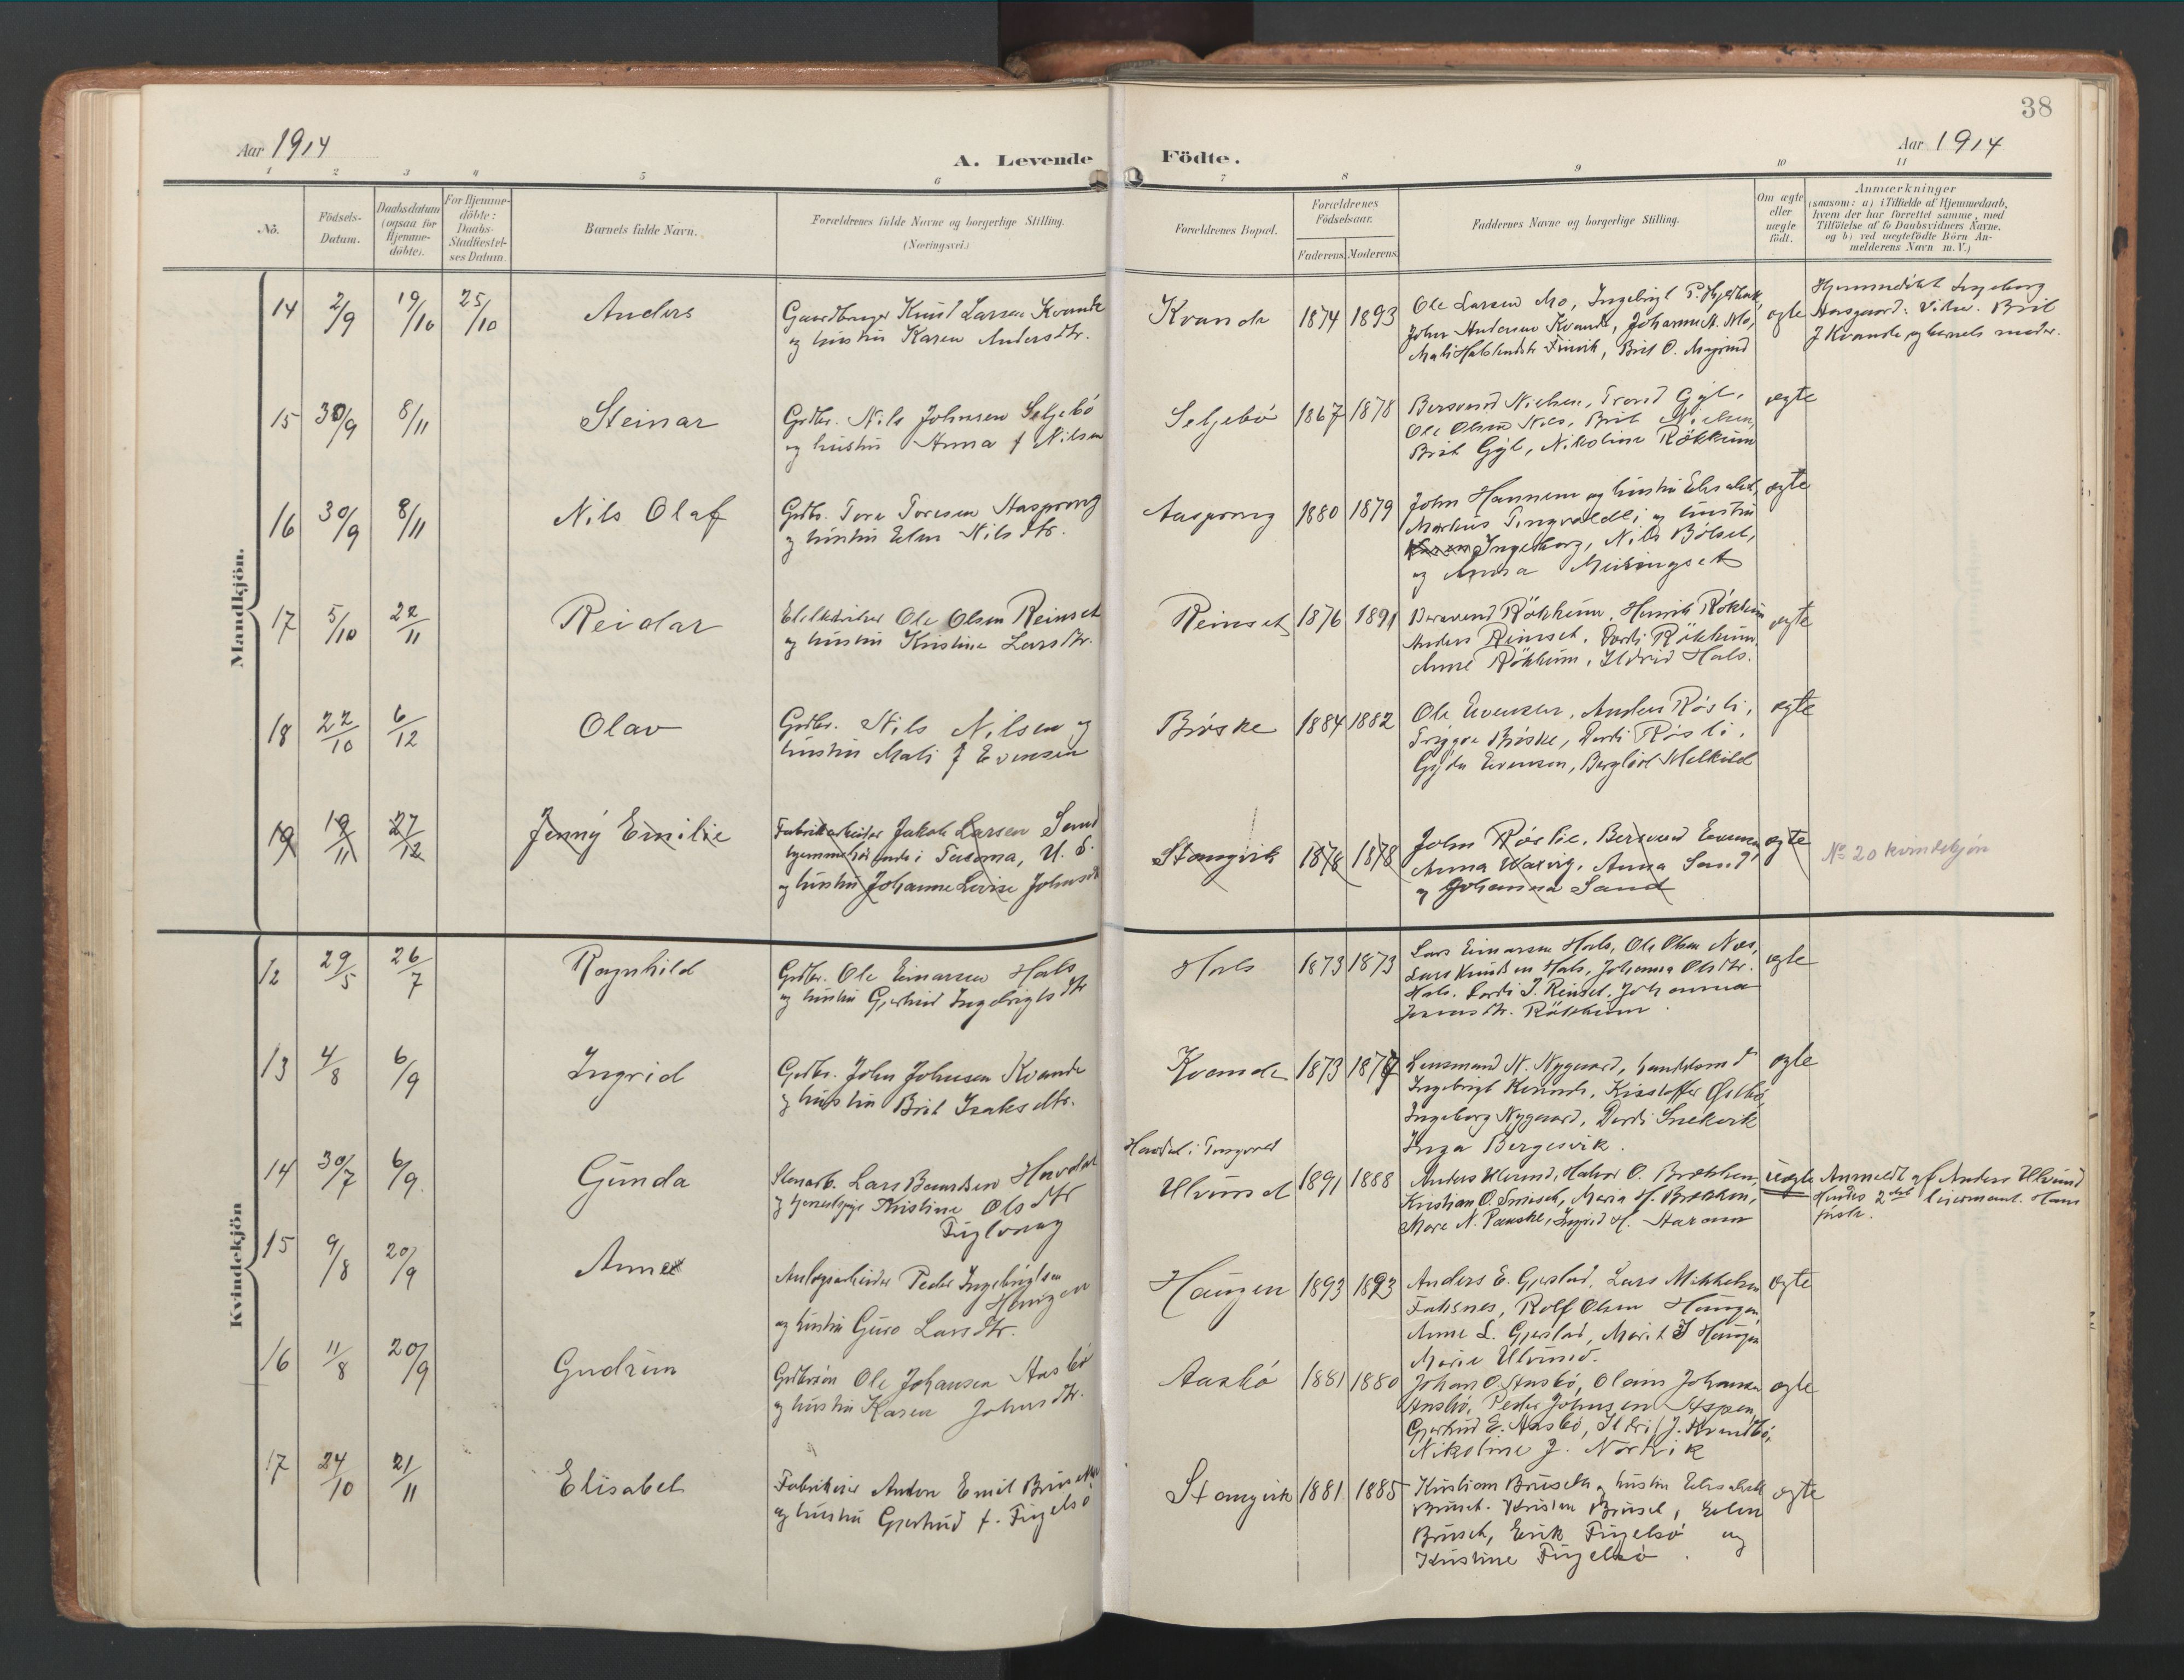 38
Aar 1914
A. Levende Födte.
Aar 1914
1 2 3 4 5 6 7 8 9 10 11
No.
Födsels-Datum.
Daabsdatum (ogsaa for Hjemmedöbte).
For Hjemmedöbte: Daabs-Stadfæstelses Datum.
Barnets fulde Navn.
Forældrenes fulde Navne og borgerlige Stilling. (Næringsvei.)
Forældrenes Bopæl.
Forældrenes Födselsaar.
Faderens. Moderens.
Faddernes Navne og borgerlige Stilling.
Om ægte eller uægte födt.
Anmærkninger
(saasom: a) i Tilfælde af Hjemmedaab,
hvem der har forrettet samme, med
Tilföielse af to Daabsvidners Navne.
og b) ved uægtefödte Börn Anmelderens Navn m. V.)
Mandkjön.
14 2/9 19/10 25/10 Anders
Gaardbruger Knud Larsen Kvande
og hustru Karen Andersdtr.
Kvande 1874 1893
Ole Larsen Mo, Ingebrigt P.
John Andersen Kvande, Johanne A. Mo,
Brit O.
ægte
Hjemmedöbt Ingeborg
Aasgaard. Vidn. Brit
J Kvande og barnets moder.
15 30/9 8/11 Steinar
Grdbr. Nils Johnsen Seljebö
og hustru Anna f Nilsen
Seljebö 1867 1878
Bersvend Nielsen, Trond Gyl,
Ole Olsen Næs, Brit Nielsen,
Brit Gyl, Nikoline Rökkum
ægte
16 30/9 8/11 Nils Olaf
Grdbr. Tore Toresen Aasprong
og hustru Elen Nilsdtr.
Aasprong 1880 1879
John Hannem og hustru Elisabet,
Markus Tingvoldli og hustru
Karen Ingeborg, Nils Bölset,
og Anna Meisingset
ægte
17 5/10 22/11 Reidar
Ole Olsen Reinset
og hustru Kristine Larsdtr.
Reinset 1876 1891
Bersvend Rökkum, Henrik Rökkum
Anders Reinset, Dordi Rökkum,
Anne Rökkum, Ildrid Hals.
ægte
18 22/10 6/12 Olav
Grdbr. Nils Nilsen og
hustru Mali f Evensen
Böske 1884 1882
Ole Evensen, Anders Rösli,
Trygve Böske, Dordi Rösli,
Gyda Evensen, Bergliot Melkild
ægte
19 19/11 27/12 Jenny Emilie
Fabrikarbeider Jakob Larsen Sand
hjemmehörende i Tacoma, U. S.
og hustru Johanne Lovise Johnsdtr
Stangvik 1878 1878
John Röslie, Bersvend Evensen,
Anna Waavg, Anna Sand,
og Johanna Sand
ægte
No 20 kvindekjön
Kvindekjön
12 29/5 26/7 Ragnhild
Grdbr. Ole Einarsen Hals
og hustru Gjertrud Ingebrigtsdtr
Hals 1873 1873
Lars Einarsen Hals, Ole Olsen Næs,
Lars Knudsen Hals, Johanna Olsdtr.
Hals, Dordi J. Reinset, Johanna
Jonsdtr. Rökkum.
ægte
13 4/8 6/9 Ingrid
Grdbr. John Johnsen Kvande
og hustru Brit Isaksdtr.
Kvande 1873 1877
Lensmand N. Nygaard, handelsmd
Ingebrigt Kvande, Kristoffer
Ingeborg Nygaard, Dordi Snekvik
Inga Bergesvik.
ægte
14 30/7 6/9 Gunda
Stenarb. Lars Bendtsen Havdal
og Kristine Olsdtr
Fuglvaag
Havdal i Tingvold
Ulvund 1891 1888
Anders Ulvund, Halvor O. Brökken,
Kristian O. Smiset, Maria H. Brökken,
Mare N. Pauske, Ingrid H.
uægte
Anmeldt af Anders Ulvund
Hendes 2det leiermaal. Hans
förste.
15 9/8 20/9 Anne
Anlægsarbeider Peder Ingebrigtsen
Haugen
og hustru Guro Larsdtr.
Haugen 1893 1893
Anders E. Gjerstad, Lars Mikkelsen
Rolf Olsen Haugen,
Anne L. Gjerstad, Marit I Haugen
Marie Ulvund.
ægte
16 11/8 20/9 Gudrun
Ole Johansen Aasbö
og hustru Karen Johnsdtr.
Aasbö 1881 1880
Johan O. Aasbö, Olaus Johansen
Aasbö, Peder Johnsen Aspen,
Gjertrud E. Aasbö, Ildri J. Kvendbö,
Nikoline J. Nordvik
ægte
17 24/10 21/11 Elisabet
Fabrikeier Anton Emil Brüseth
og hustru Gjertrud f. Fugelsö
Stangvik 1881 1885
Kristian Brüseth og hustru Elisabeth
Brüset, Kristen Brüset, Elen
Brüseth, Eirik Fugelsö og
Kristine Fugelsö.
ægte